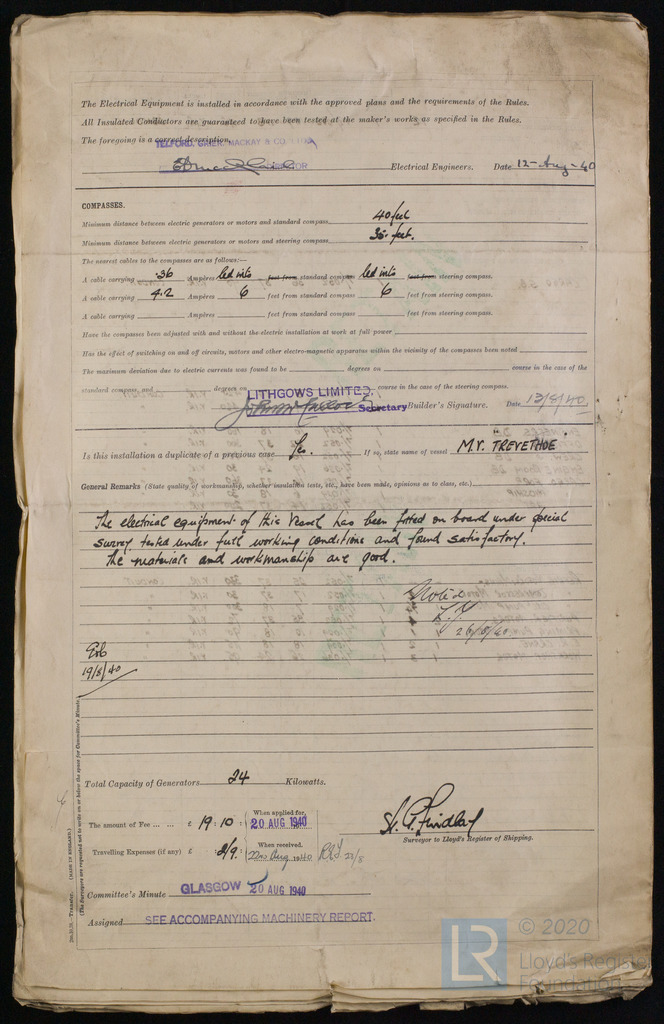 The Electrical Equipment is installed in accordance with the approved plans and the requirements of the Rules.
All Insulated Conductors are guaranteed to have been tested at the maker's works as specified in the Rules.
The foregoing is a correct description.
TELFORD, GRIER, MACKAY & CO
Electrical Engineers. Date 12-Aug-40
COMPASSES.
Minimum distance between electric generators or motors and standard compass 40 feet
Minimum distance between electric generators or motors and steering compass 35 feet.
The nearest cables to the compasses are as follows:—
A cable carrying .36 Ampères led into feet from standard compass led into feet from steering compass.
A cable carrying 4.2 Ampères 6 feet from standard compass 6 feet from steering compass.
A cable carrying Ampères feet from standard compass feet from steering compass.
Have the compasses been adjusted with and without the electric installation at work at full power
Has the effect of switching on and off circuits, motors and other electro-magnetic apparatus within the vicinity of the compasses been noted
The maximum deviation due to electric currents was found to be degrees on course in the case of the
standard compass, and degrees on course in the case of the steering compass.
LITHGOWS LIMITED.
Secretary Builder's Signature. Date 13/8/40.
Is this installation a duplicate of a previous case Yes. If so, state name of vessel M.V. TREVETHOE
General Remarks (State quality of workmanship, whether insulation tests, etc., have been made, opinions as to class, etc.)
The electrical equipment of this vessel has been fitted on board under special
survey tested under full working conditions and found satisfactory.
The materials and workmanship are good.
Noted
26/8/40
19/8/40
Total Capacity of Generators 24 Kilowatts.
The amount of Fee ... ... £ 19 : 10 : When applied for, 20 AUG 1940
H. G. Findlay
Surveyor to Lloyd's Register of Shipping.
Travelling Expenses (if any) £ : 2/9 : When received, 22nd Aug 1940 Rtd 23/8
Committee's Minute GLASGOW 20 AUG 1940
Assigned SEE ACCOMPANYING MACHINERY REPORT.
(MADE IN ENGLAND.)
(The Surveyors are requested not to write on or below the space for Committee's Minute.)
LR © 2020
Lloyd's Register
Foundation